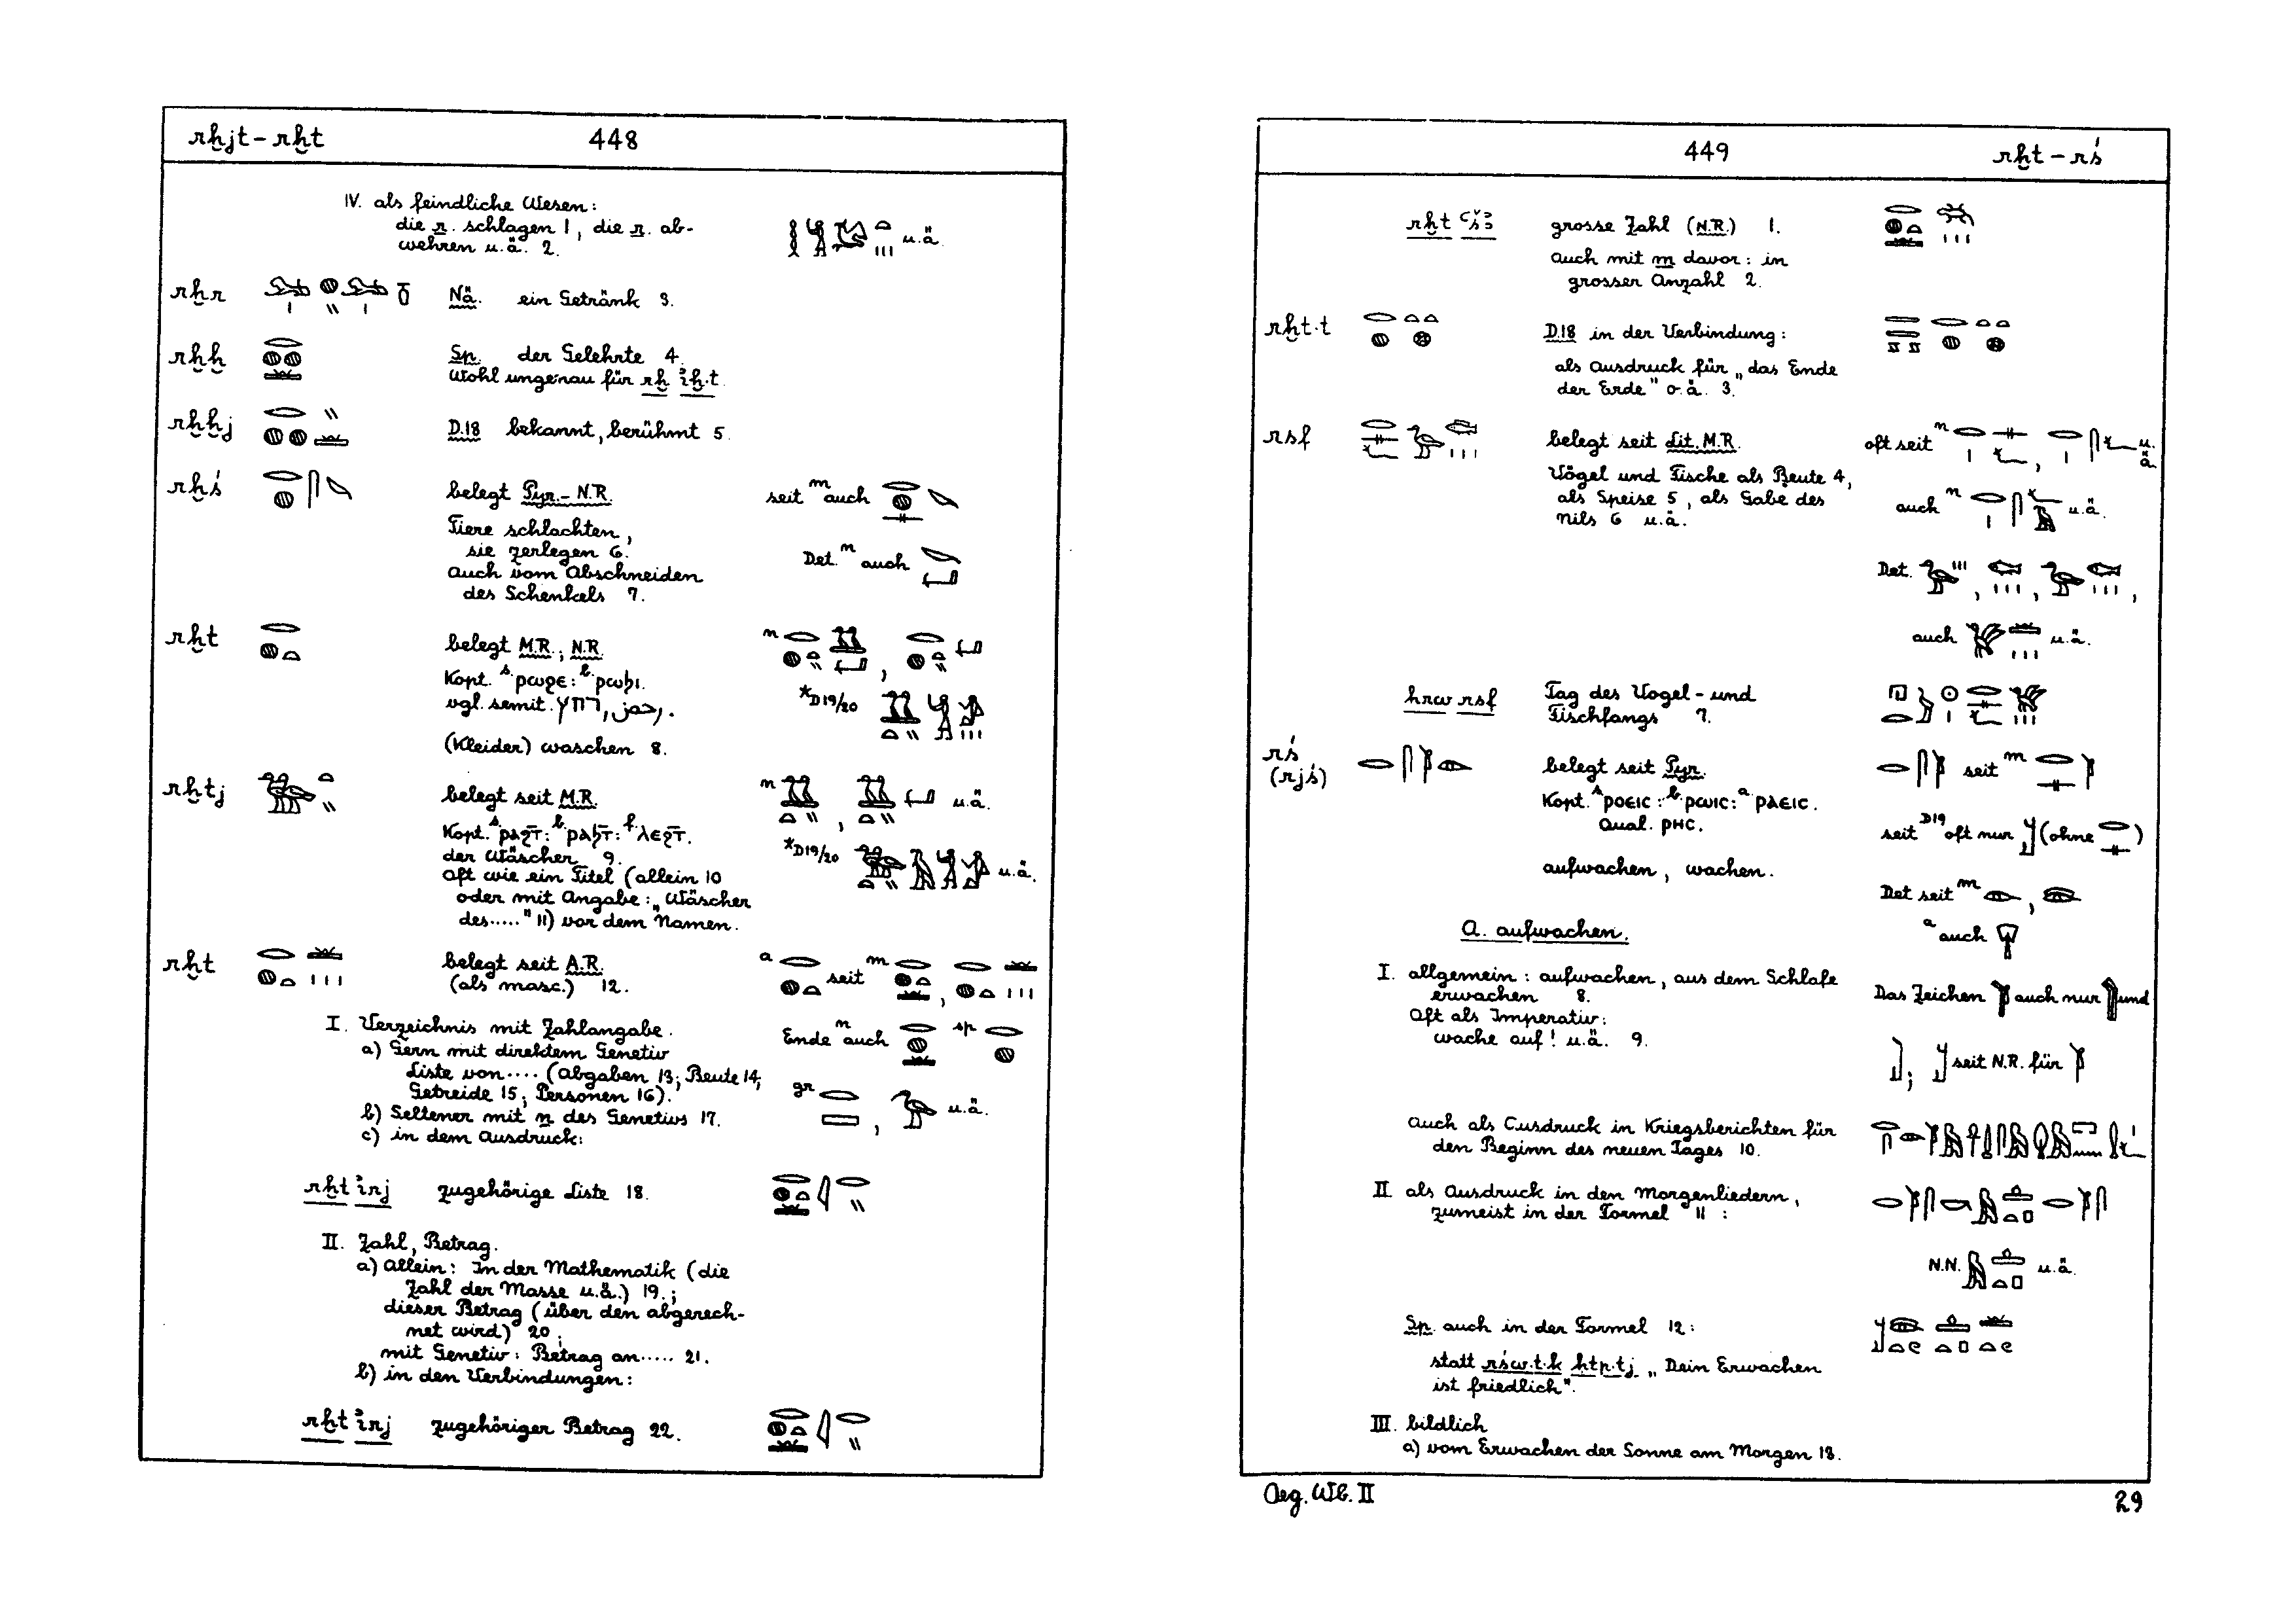 rḫjt – rḫt 448
IV. als feindliche Wesen:
die r. schlagen 1, die r. ab-
wehren u.ä. 2.
u.ä.
rḫr Nä. ein Getränk 3.
rḫḫ Sp. der Gelehrte 4.
Wohl ungenau für rḫ iḫ.t
rḫḫj D.18 bekannt, berühmt 5.
rḫś belegt Pyr.–N.R. seit m auch
Tiere schlachten,
sie zerlegen 6. Det. n auch
auch vom Abschneiden
des Schenkels 7.
rḫt belegt M.R., N.R. n ,
Kopt. s. ⲣⲱϩⲉ: b. ⲣⲱϧⲓ.
vgl. semit. רחץ, رحض. *D19/20
(Kleider) waschen 8.
rḫtj belegt seit M.R. n , u.ä.
Kopt. s. ⲣⲁϩⲧ̄: b. ⲣⲁϧⲧ̄: f. ⲗⲉϩⲧ̄.
der Wäscher 9. *D19/20 u.ä.
oft wie ein Titel (allein 10
oder mit Angabe: „Wäscher
des....." 11) vor dem Namen.
rḫt belegt seit A.R. a seit m ,
(als masc.) 12.
I. Verzeichnis mit Zahlangabe. Ende n auch sp
a) Gern mit direktem Genetiv
Liste von.... (Abgaben 13; Beute 14,
Getreide 15; Personen 16). gr , u.ä.
b) Seltener mit n des Genetivs 17.
c) in dem Ausdruck:
rḫt irj zugehörige Liste 18.
II. Zahl, Betrag.
a) Allein: In der Mathematik (die
Zahl der Masse u.ä.) 19.;
dieser Betrag (über den abgerech-
net wird) 20;
mit Genetiv: Betrag an..... 21.
b) in den Verbindungen:
rḫt irj zugehöriger Betrag 22.
449 rḫt – rś
rḫt ꜥšꜣ grosse Zahl (N.R.) 1.
auch mit m davor: in
grosser Anzahl 2.
rḫt.t D.18 in der Verbindung:
als Ausdruck für „das Ende
der Erde" o.ä. 3.
rsf belegt seit Lit. M.R. oft seit n , u.ä.
Vögel und Fische als Beute 4,
als Speise 5, als Gabe des auch n u.ä.
Nils 6 u.ä.
Det. , , ,
auch u.ä.
hrw rsf Tag des Vogel- und
Fischfangs 7.
rś
(rjś) belegt seit Pyr. seit m
Kopt. s. ⲣⲟⲉⲓⲥ: b. ⲣⲱⲓⲥ: a. ⲣⲁⲉⲓⲥ.
Qual. ⲣⲏⲥ. seit D19 oft nur (ohne )
aufwachen, wachen.
Det seit m ,
a auch
A. aufwachen.
I. allgemein: aufwachen, aus dem Schlafe
erwachen 8. Das Zeichen auch nur und
Oft als Imperativ:
wache auf! u.ä. 9. ; seit N.R. für
Auch als Ausdruck in Kriegsberichten für
den Beginn des neuen Tages 10.
II. als Ausdruck in den Morgenliedern,
zumeist in der Formel 11:
N.N. u.ä.
Sp. auch in der Formel 12:
statt rśw.t.k ḥtp.tj „Dein Erwachen
ist friedlich".
III. bildlich
a) vom Erwachen der Sonne am Morgen 13.
Aeg. Wb. II 29